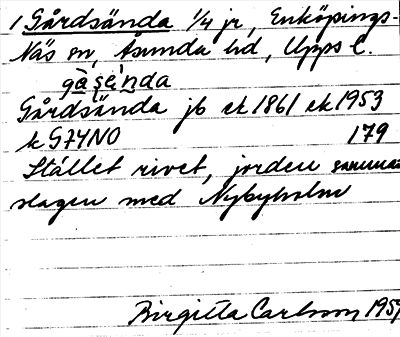 1 Gårdsända 1/4 jr, Enköpings-
Näs sn, Åsunda hd, Upps l.
gà̀ṣä́nda
Gårdsända jb ek 1861 ek 1953
k G74NO 179
Stället rivet, jorden samman
slagen med Nybyholm
Birgitta Carlsson 1959